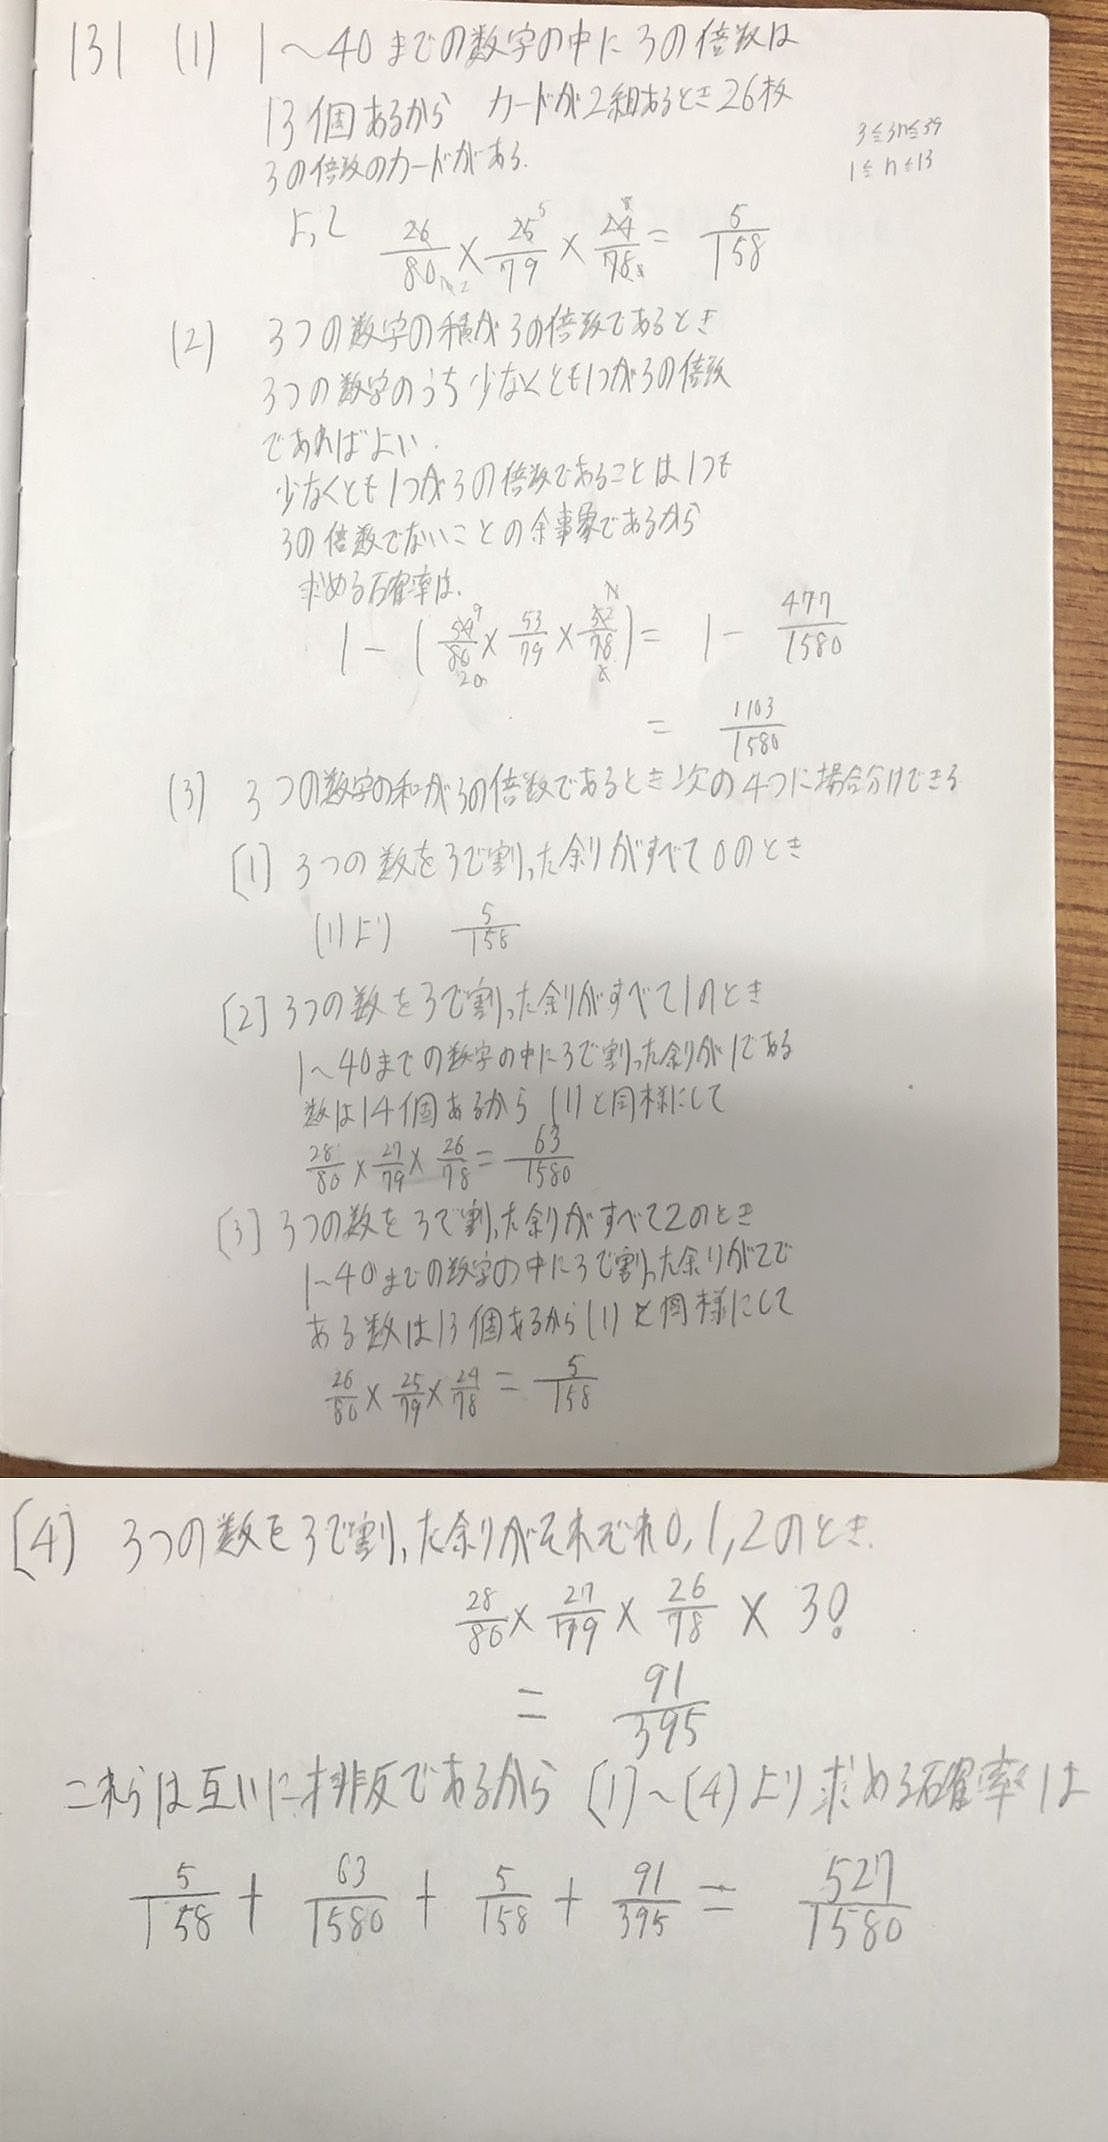 131 (1) 1~40までの数字の中に3の倍数は
13個あるから カードが2組あるとき26枚
3の倍数のカードがある.
3≦3n≦39
1≦n≦13
よって 26/80 × 25/79 × 24/78 = 5/158
(2) 3つの数字の積が3の倍数であるとき
3つの数字のうち少なくとも1つが3の倍数
であればよい.
少なくとも1つが3の倍数であることは1つも
3の倍数でないことの余事象であるから
求める確率は.
1 - (54/80 × 53/79 × 52/78) = 1 - 477/1580
= 1103/1580
(3) 3つの数字の和が3の倍数であるとき次の4つに場合分けできる
[1] 3つの数を3で割った余りがすべて0のとき
(1)より 5/158
[2] 3つの数を3で割った余りがすべて1のとき
1~40までの数字の中に3で割った余りが1である
数は14個あるから (1)と同様にして
28/80 × 27/79 × 26/78 = 63/1580
[3] 3つの数を3で割った余りがすべて2のとき
1~40までの数字の中に3で割った余りが2で
ある数は13個あるから(1)と同様にして
26/80 × 25/79 × 24/78 = 5/158
[4] 3つの数を3で割った余りがそれぞれ0,1,2のとき.
28/80 × 27/79 × 26/78 × 3!
= 91/395
これらは互いに排反であるから [1]~[4]より求める確率は
5/158 + 63/1580 + 5/158 + 91/395 = 527/1580